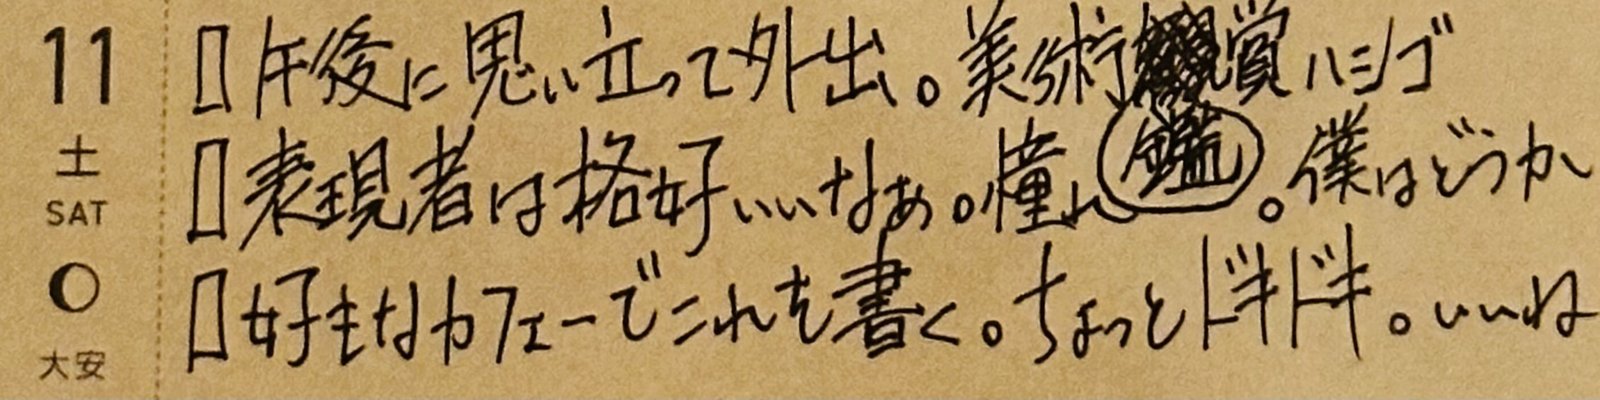 11
土
SAT
大安
午後に思い立って外出。美術鑑賞ハシゴ
表現者は格好いいなぁ。憧れ。僕はどうか
好きなカフェーでこれを書く。ちょっとドキドキ。いいね